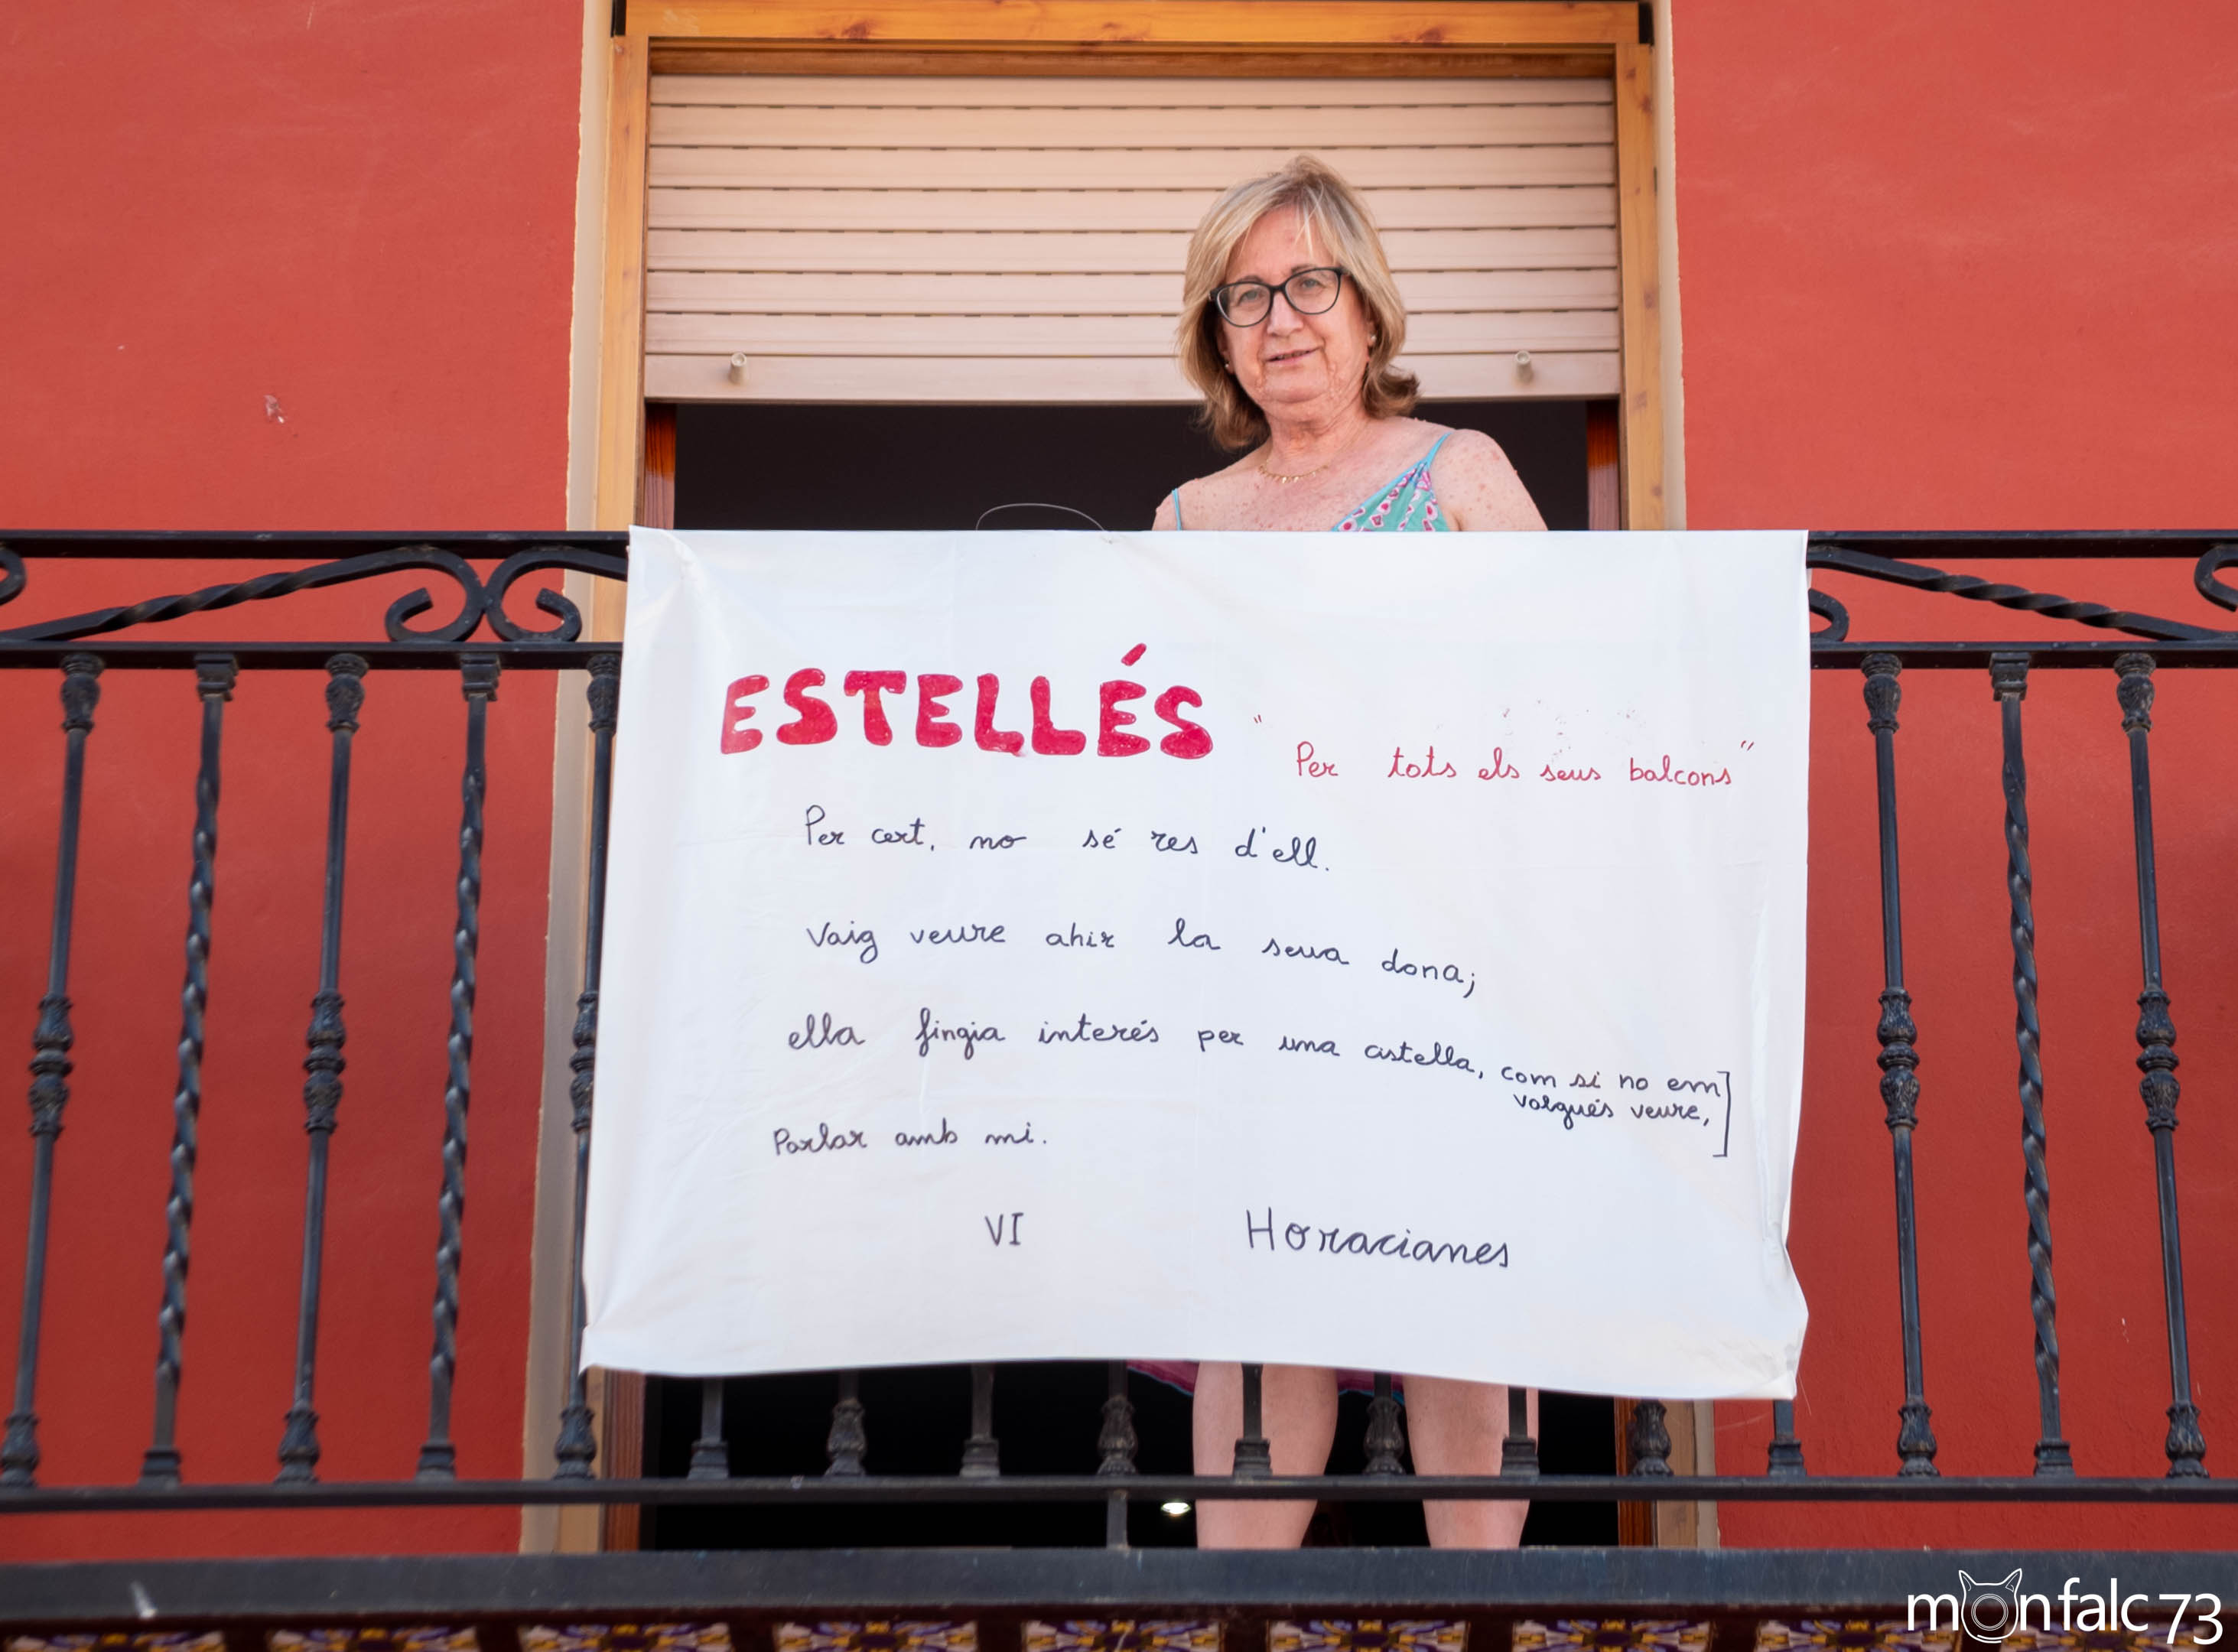 ESTELLÉS "Per tots els seus balcons"
Per cert, no sé res d'ell.
Vaig veure ahir la seua dona;
ella fingia interés per una cistella, com si no em
volgués veure,]
Parlar amb mi.
VI Horacianes
monfalc 73